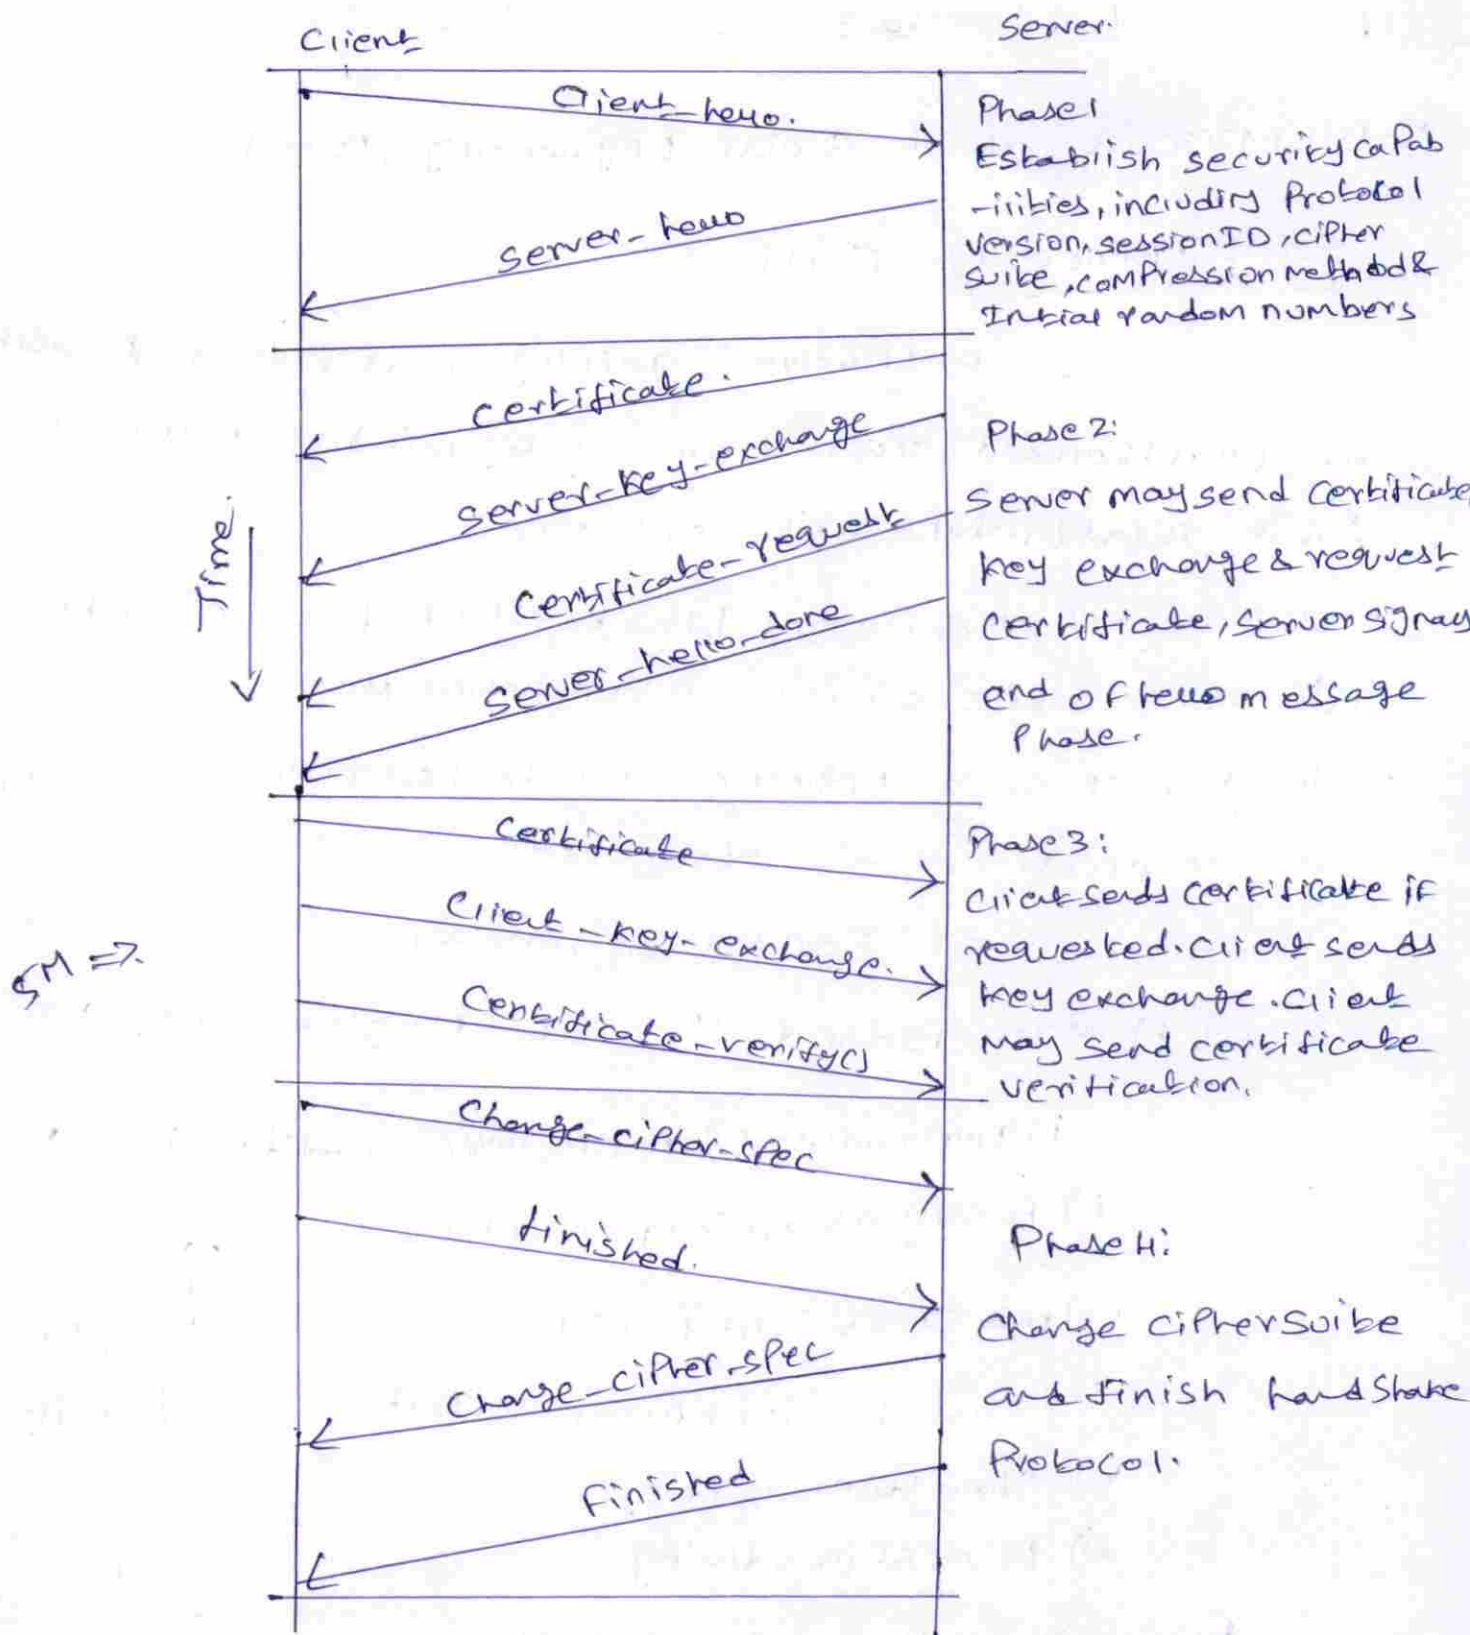 Client
Server.
Client_hello.
Phase1
Establish security capab
-ilities, including Protocol
version, sessionID, cipher
suite, compression method &
Initial random numbers
server_hello
certificate.
server-key-exchange
Certificate-request
server_hello_done
Time.
Phase 2:
Server may send certificate,
key exchange & request
certificate, server signals
end of hello message
Phase.
Certificate
Client-key-exchange.
Certificate_verify()
Phase 3:
Client sends certificate if
requested. Client sends
key exchange. Client
may send certificate
verification.
5M =>
Change_cipher_spec
finished.
Change_cipher_spec
Finished
Phase 4:
Change cipher suite
and finish handshake
Protocol.